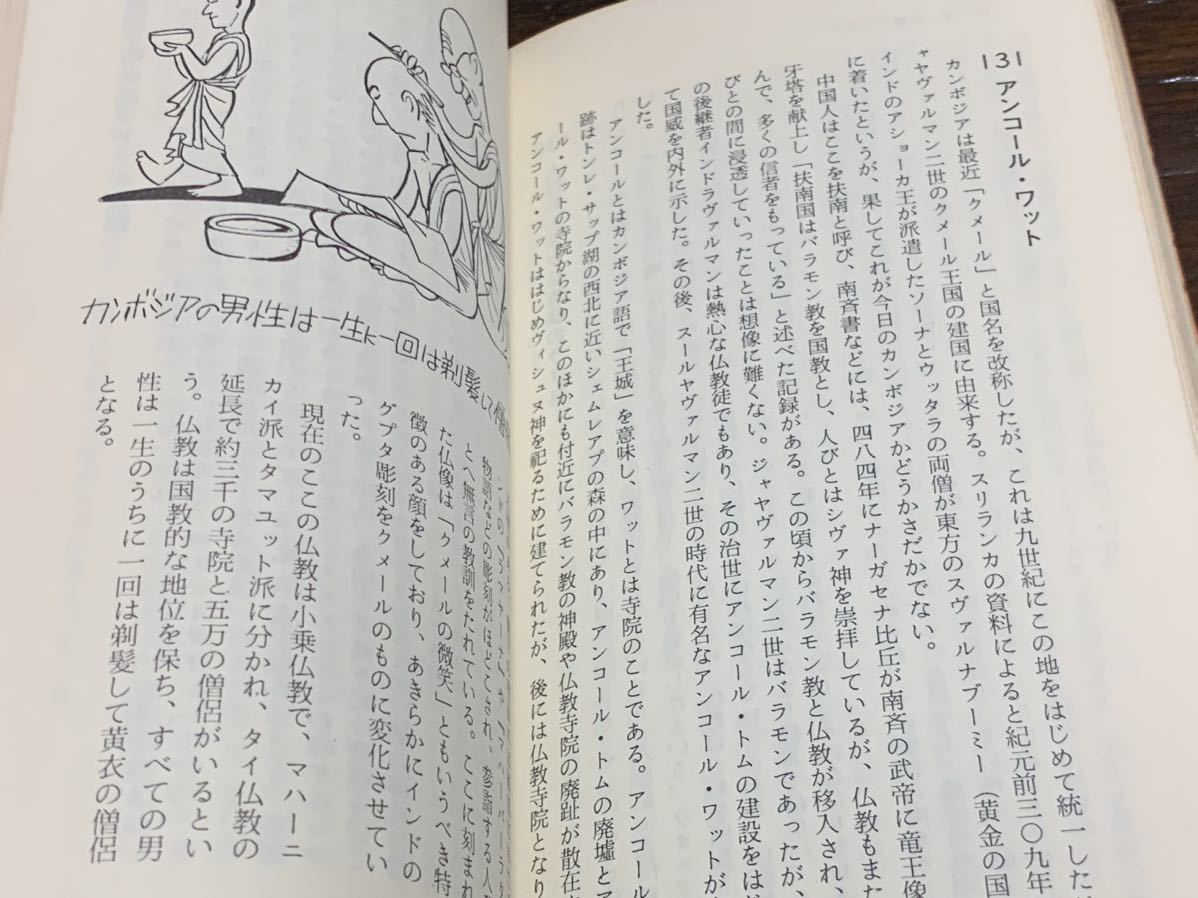 131 アンコール・ワット
カンボジアは最近「クメール」と国名を改称したが、これは九世紀にこの地をはじめて統一した
ャヴァルマン二世のクメール王国の建国に由来する。スリランカの資料によると紀元前三〇九年
インドのアショーカ王が派遣したソーナとウッタラの両僧が東方のスヴァルナブーミー（黄金の国
に着いたというが、果してこれが今日のカンボジアかどうかさだかでない。
中国人はここを扶南と呼び、南斉書などには、四八四年にナーガセナ比丘が南斉の武帝に竜王像
牙塔を献上し「扶南国はバラモン教を国教とし、人びとはシヴァ神を崇拝しているが、仏教もまた
んで、多くの信者をもっている」と述べた記録がある。この頃からバラモン教と仏教が移入され、
びとの間に浸透していったことは想像に難くない。ジャヤヴァルマン二世はバラモンであったが、
の後継者インドラヴァルマンは熱心な仏教徒でもあり、その治世にアンコール・トムの建設をはじ
て国威を内外に示した。その後、スールヤヴァルマン二世の時代に有名なアンコール・ワットが
した。
アンコールとはカンボジア語で「王城」を意味し、ワットとは寺院のことである。アンコール
跡はトンレ・サップ湖の西北に近いシェムレアプの森の中にあり、アンコール・トムの廃墟とア
ール・ワットの寺院からなり、このほかにも付近にバラモン教の神殿や仏教寺院の廃趾が散在
アンコール・ワットははじめヴィシュヌ神を祀るために建てられたが、後には仏教寺院となり
カンボジアの男性は一生に一回は剃髪して僧
物語などの彫刻がほどこされ、参詣する人
とへ無言の教訓をたれている。ここに刻まれ
た仏像は「クメールの微笑」ともいうべき特
徴のある顔をしており、あきらかにインドの
グプタ彫刻をクメールのものに変化させてい
った。
現在のここの仏教は小乗仏教で、マハーニ
カイ派とタマユット派に分かれ、タイ仏教の
延長で約三千の寺院と五万の僧侶がいるとい
う。仏教は国教的な地位を保ち、すべての男
性は一生のうちに一回は剃髪して黄衣の僧侶
となる。